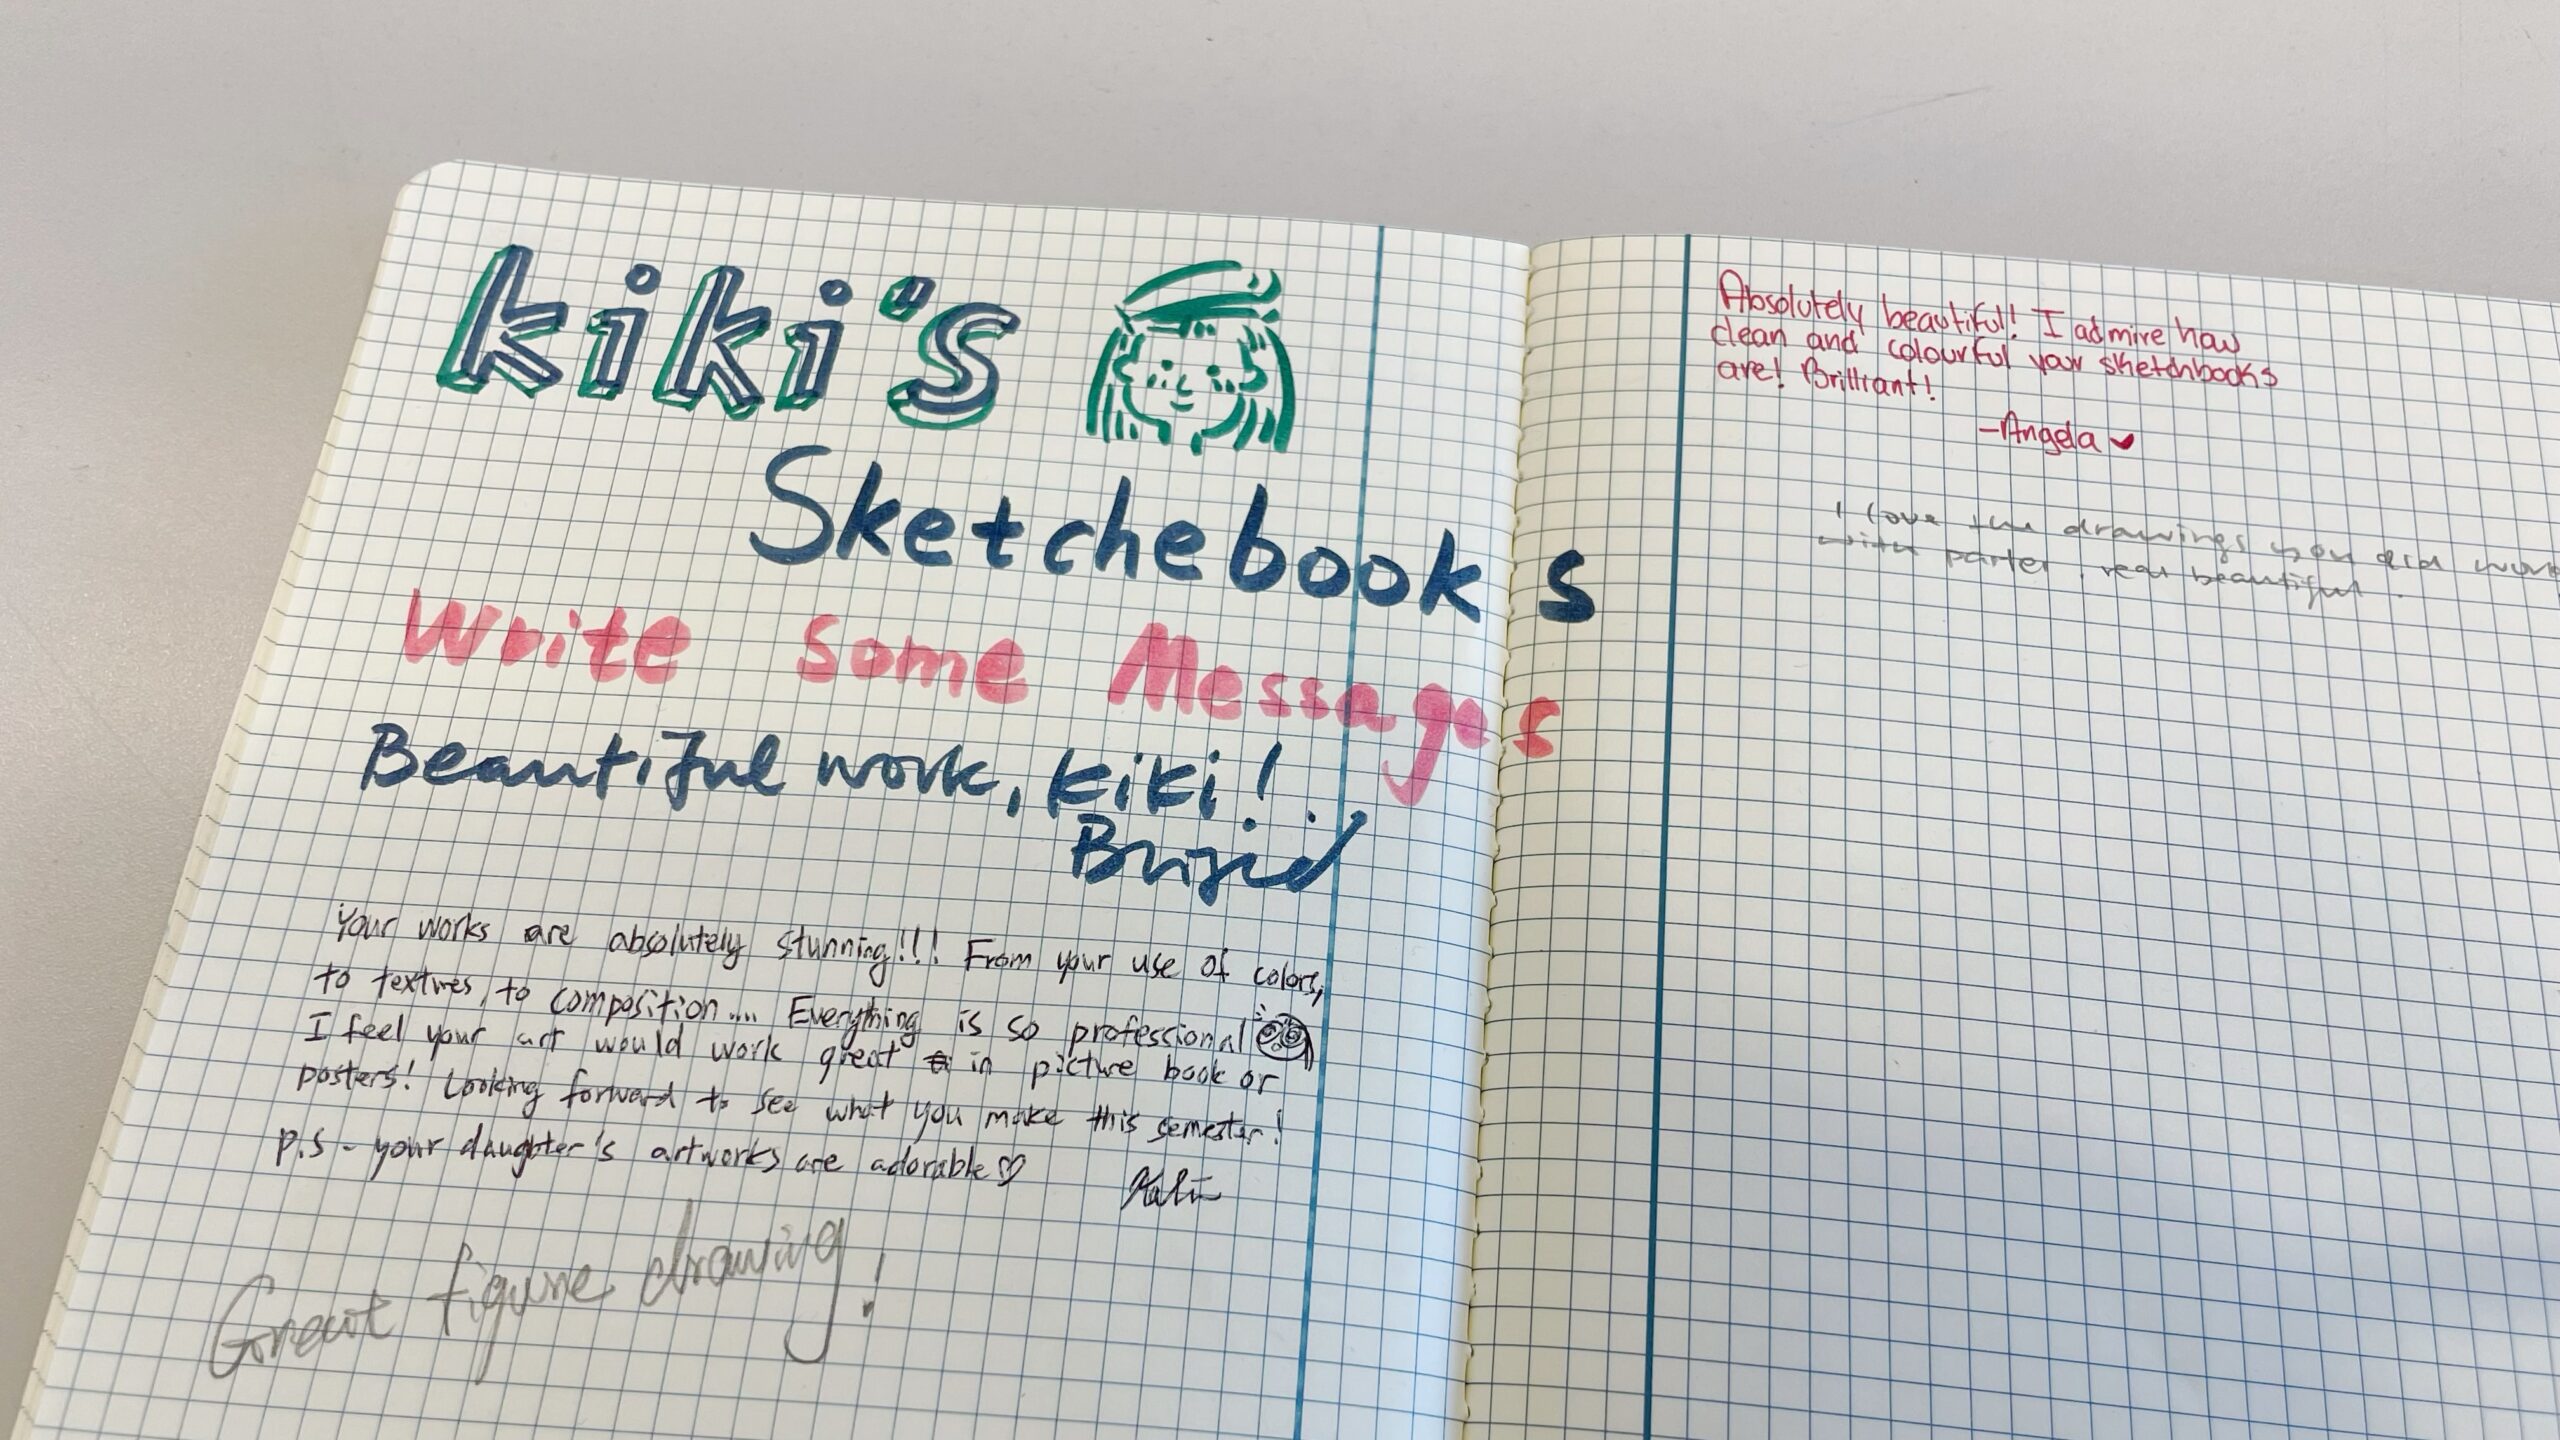 kiki's
Sketchebooks
Write some Messages
Beautiful work, kiki!
Brigid
Your works are absolutely stunning!!! From your use of colors,
to textures, to composition.... Everything is so professional
I feel your art would work great in picture book or
posters! Looking forward to see what you make this semester!
P.S - your daughter's artworks are adorable♡
Great figure drawing!
Absolutely beautiful! I admire how
clean and colourful your sketchbooks
are! Brilliant!
-Angela ♥
I love the drawings you did
with beautiful.